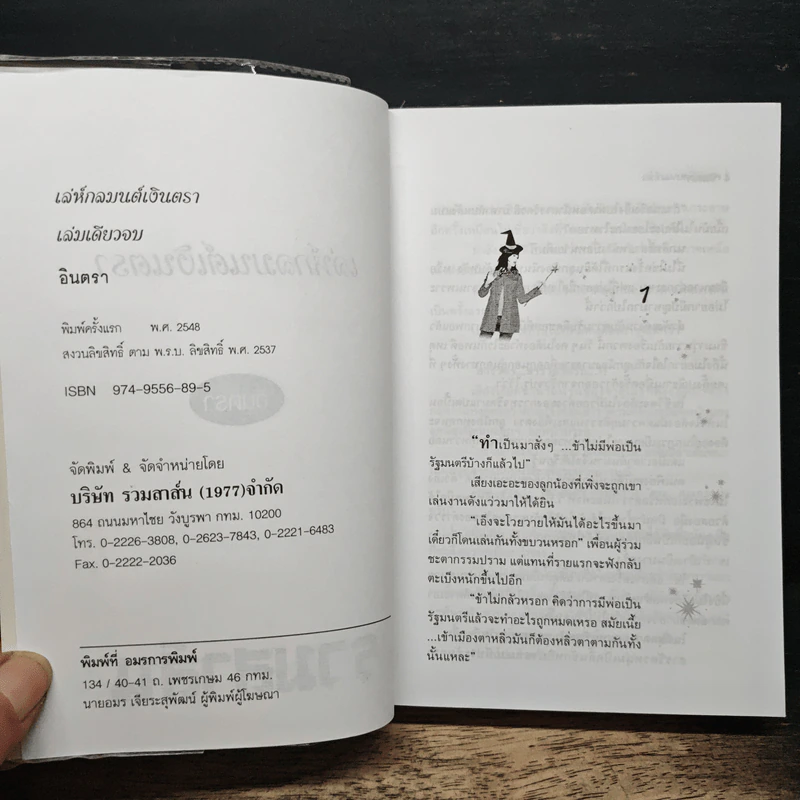 เล่ห์กลมนต์เงินตรา
เล่มเดียวจบ
อินตรา
พิมพ์ครั้งแรก พ.ศ. 2548
สงวนลิขสิทธิ์ ตาม พ.ร.บ. ลิขสิทธิ์ พ.ศ. 2537
ISBN 974-9556-89-5
จัดพิมพ์ & จัดจำหน่ายโดย
บริษัท รวมสาส์น (1977)จำกัด
864 ถนนมหาไชย วังบูรพา กทม. 10200
โทร. 0-2226-3808, 0-2623-7843, 0-2221-6483
Fax. 0-2222-2036
พิมพ์ที่ อมรการพิมพ์
134 / 40-41 ถ. เพชรเกษม 46 กทม.
นายอมร เจียระสุพัฒน์ ผู้พิมพ์ผู้โฆษณา
1
“ทำเป็นมาสั่งๆ ...ข้าไม่มีพ่อเป็น
รัฐมนตรีบ้างก็แล้วไป”
เสียงเอะอะของลูกน้องที่เพิ่งจะถูกเขา
เล่นงานดังแว่วมาให้ได้ยิน
“เอ็งจะโวยวายให้มันได้อะไรขึ้นมา
เดี๋ยวก็โดนเล่นกันทั้งขบวนหรอก” เพื่อนผู้ร่วม
ชะตากรรมปราม แต่แทนที่รายแรกจะฟังกลับ
ตะเบ็งหนักขึ้นไปอีก
“ข้าไม่กลัวหรอก คิดว่าการมีพ่อเป็น
รัฐมนตรีแล้วจะทำอะไรถูกหมดเหรอ สมัยเนี้ย
...เข้าเมืองตาหลิ่วมันก็ต้องหลิ่วตาตามกันทั้ง
นั้นแหละ”